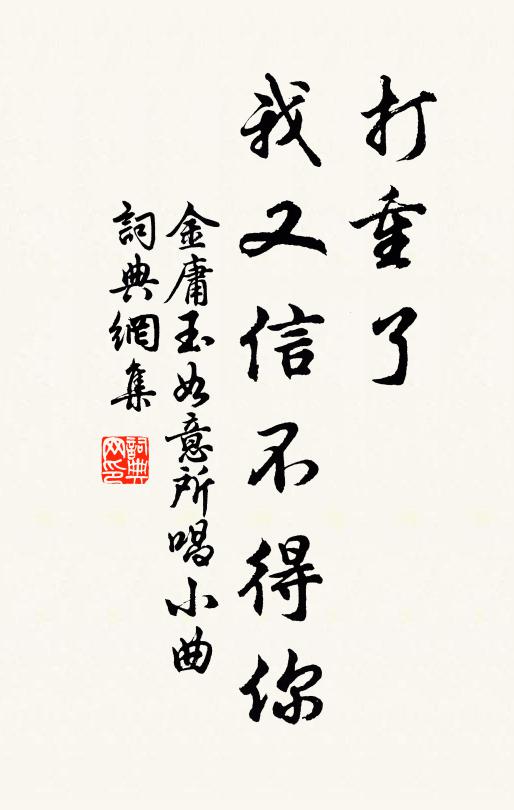 打重了
我又信不得你
金庸玉如意所唱小曲
詞典網集
詞典網印